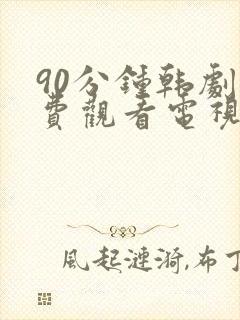 90分鍾韩劇
費觀看電視
風起漣漪,布丁